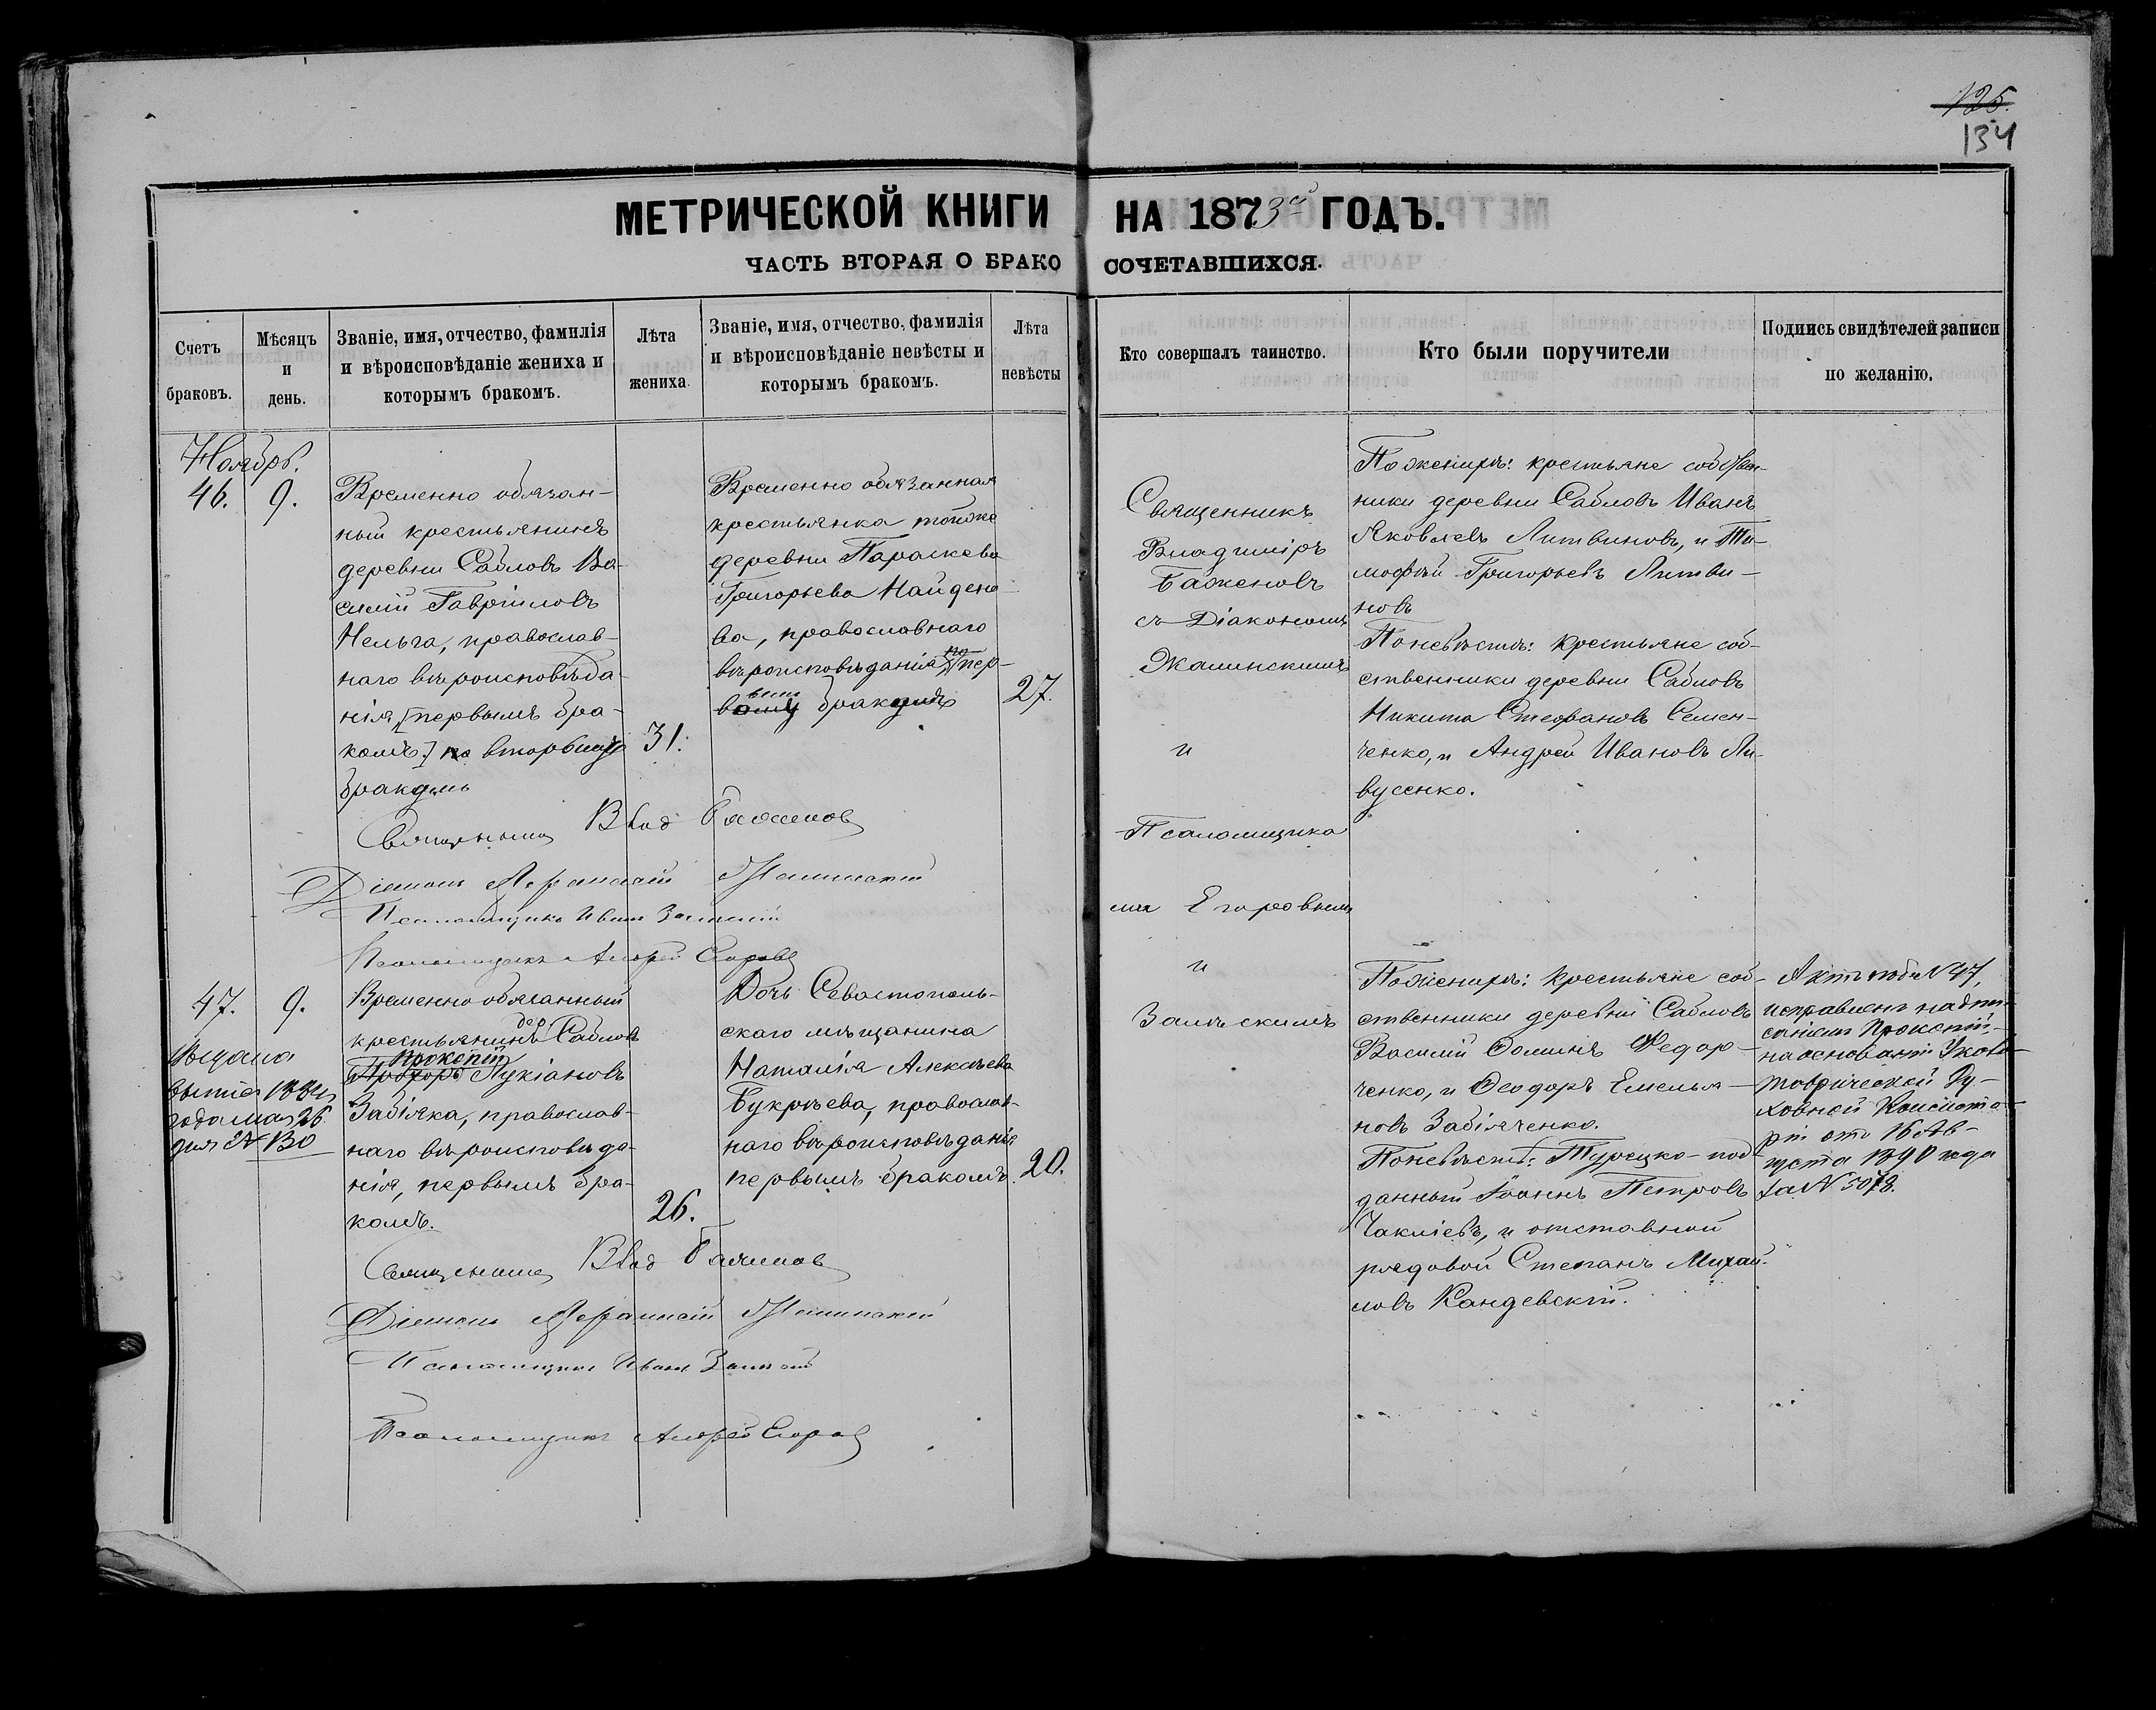 125.
134
МЕТРИЧЕСКОЙ КНИГИ НА 1873й ГОДЪ.
ЧАСТЬ ВТОРАЯ О БРАКОСОЧЕТАВШИХСЯ.
Счетъ браковъ.
Мѣсяцъ и день.
Званіе, имя, отчество, фамилія
и вѣроисповѣданіе жениха и
которымъ бракомъ.
Лѣта
жениха.
Званіе, имя, отчество, фамилія
и вѣроисповѣданіе невѣсты и
которымъ бракомъ.
Лѣта
невѣсты
Кто совершалъ таинство.
Кто были поручители
Подпись свидѣтелей записи
по желанію.
Ноябрь.
46. 9.
Временно обязан-
ный крестьянинъ
деревни Сабловъ Ва-
силій Гавріиловъ
Нельга, православ-
наго вѣроисповѣда-
нія, [первымъ бра-
комъ] вторымъ
бракомъ
31.
Временно обязанная
крестьянка тойже
деревни Параскева
Григорьева Найдено
ва, православнаго
вѣроисповѣданія, пер-
вымъ бракомъ
27.
Священникъ
Владиміръ
Баженовъ
съ Діакономъ
Жалинскимъ
и
Псаломщика
ми Егоровымъ
и
Пожениху: крестьяне собствен-
ники деревни Сабловъ Иванъ
Яковлевъ Литвиновъ, и Ти-
мофей Григорьевъ Литви-
новъ
Поневѣстѣ: крестьяне соб-
ственники деревни Сабловъ
Никита Стефановъ Семен-
ченко, и Андрей Ивановъ Ли-
вусенко.
Священникъ Влад Баженовъ
Діаконъ
Псаломщикъ Иванъ
Псаломщикъ Андрей Егоровъ
47. 9.
Выдана
года мая 26
дня № 130
Временно обязанный
крестьянинъ дер. Сабловъ
Прокопій
Прохоръ Лукіановъ
Забіяка, православ-
наго вѣроисповѣда-
нія, первымъ бра-
комъ.
26.
Дочь Севастополь-
скаго мѣщанина
Наталія Алексѣева
Букрѣева, православ-
наго вѣроисповѣданія
первымъ бракомъ.
20.
Пожениху: крестьяне соб-
ственники деревни Сабловъ
Василій Фоминъ Федор-
ченко, и Феодоръ Емелья-
новъ Забіяченко.
Поневѣстѣ: Турецко-под-
данный Іоаннъ Петровъ
Чакліевъ, и отставной
рядовой Степанъ Михай-
ловъ Кандевскій.
Актъ № 47,
исправленъ надпи-
саніемъ Прокопій-
на основаніи Указа
Таврической Ду-
ховной Консисто-
ріи отъ 16 Ав-
густа 1890 года
за № 5078.
Священникъ Влад Баженовъ
Діаконъ
Псаломщикъ Иванъ
Псаломщикъ Андрей Егоровъ